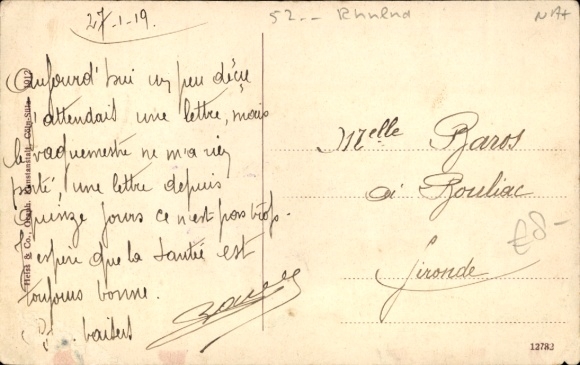 27-1-19.
52-- Rhnlnd
Aujourd'hui un peu déçu
j'attendais une lettre, mais
le vaguemestre ne m'a rien
porté, une lettre depuis
quinze jours ce n'est pas trop.
J'espère que la santé est
toujours bonne.
baisers
Melle Baros
à Bouliac
Gironde
€8-
Heiss & Co., Graph. Kunstanstalt, Cöln-Sülz 1912
12782